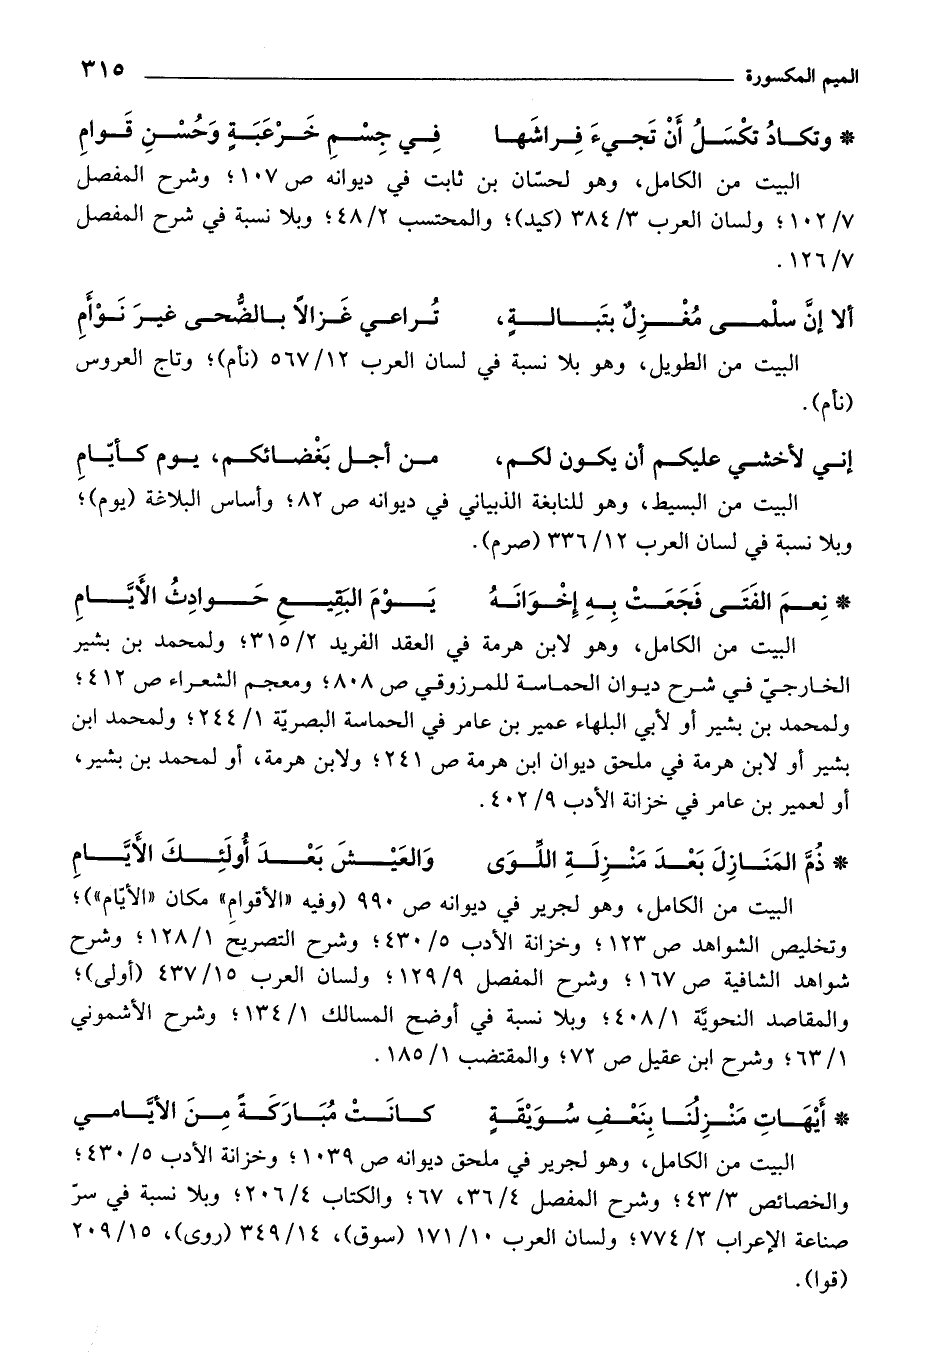 الميم المكسورة ٣١٥
* وتكادُ تكْسَلُ أَنْ تَجيءَ فِراشَها فِي جِسْمِ خَرْعَبَةٍ وَحُسْنِ قَوامِ
البيت من الكامل، وهو لحسّان بن ثابت في ديوانه ص ١٠٧؛ وشرح المفصل
٧/ ١٠٢؛ ولسان العرب ٣/ ٣٨٤ (كيد)؛ والمحتسب ٢/ ٤٨؛ وبلا نسبة في شرح المفصل
٧/ ١٢٦.
ألا إنَّ سلْمى مُغْزِلٌ بتَبَالةٍ، تُراعي غَزالاً بالضُّحى غيرَ نَوْأَمِ
البيت من الطويل، وهو بلا نسبة في لسان العرب ١٢/ ٥٦٧ (نأم)؛ وتاج العروس
(نأم).
إني لأخشي عليكم أن يكون لكم، من أجل بَغْضائكم، يوم كأيّامِ
البيت من البسيط، وهو للنابغة الذبياني في ديوانه ص ٨٢؛ وأساس البلاغة (يوم)؛
وبلا نسبة في لسان العرب ١٢/ ٣٣٦ (صرم).
* نِعمَ الفَتَى فَجَعَتْ بِهِ إخْوَانَهُ يَوْمَ البَقِيعِ حَوادِثُ الأيَّامِ
البيت من الكامل، وهو لابن هرمة في العقد الفريد ٢/ ٣١٥؛ ولمحمد بن بشير
الخارجيّ في شرح ديوان الحماسة للمرزوقي ص ٨٠٨؛ ومعجم الشعراء ص ٤١٢؛
ولمحمد بن بشير أو لأبي البلهاء عمير بن عامر في الحماسة البصريّة ١/ ٢٤٤؛ ولمحمد ابن
بشير أو لابن هرمة في ملحق ديوان ابن هرمة ص ٢٤١؛ ولابن هرمة، أو لمحمد بن بشير،
أو لعمير بن عامر في خزانة الأدب ٩/ ٤٠٢.
* ذُمَّ المَنَازِلَ بَعْدَ مَنْزِلَةِ اللِّوَى وَالعَيْشَ بَعْدَ أُولَئِكَ الأَيَّامِ
البيت من الكامل، وهو لجرير في ديوانه ص ٩٩٠ (وفيه «الأقوامِ» مكان «الأيّام»)؛
وتخليص الشواهد ص ١٢٣؛ وخزانة الأدب ٥/ ٤٣٠؛ وشرح التصريح ١/ ١٢٨؛ وشرح
شواهد الشافية ص ١٦٧؛ وشرح المفصل ٩/ ١٢٩؛ ولسان العرب ١٥/ ٤٣٧ (أولى)؛
والمقاصد النحويَّة ١/ ٤٠٨؛ وبلا نسبة في أوضح المسالك ١/ ١٣٤؛ وشرح الأشموني
١/ ٦٣؛ وشرح ابن عقيل ص ٧٢؛ والمقتضب ١/ ١٨٥.
* أَيْهَاتِ مَنْزِلُنَا بِنَعْفِ سُوَيْقَةٍ كانَتْ مُبَارَكَةً مِنَ الأيَّامي
البيت من الكامل، وهو لجرير في ملحق ديوانه ص ١٠٣٩؛ وخزانة الأدب ٥/ ٤٣٠؛
والخصائص ٣/ ٤٣؛ وشرح المفصل ٤/ ٣٦، ٦٧؛ والكتاب ٤/ ٢٠٦؛ وبلا نسبة في سرّ
صناعة الإعراب ٢/ ٧٧٤؛ ولسان العرب ١٠/ ١٧١ (سوق)، ١٤/ ٣٤٩ (روى)، ١٥/ ٢٠٩
(قوا).